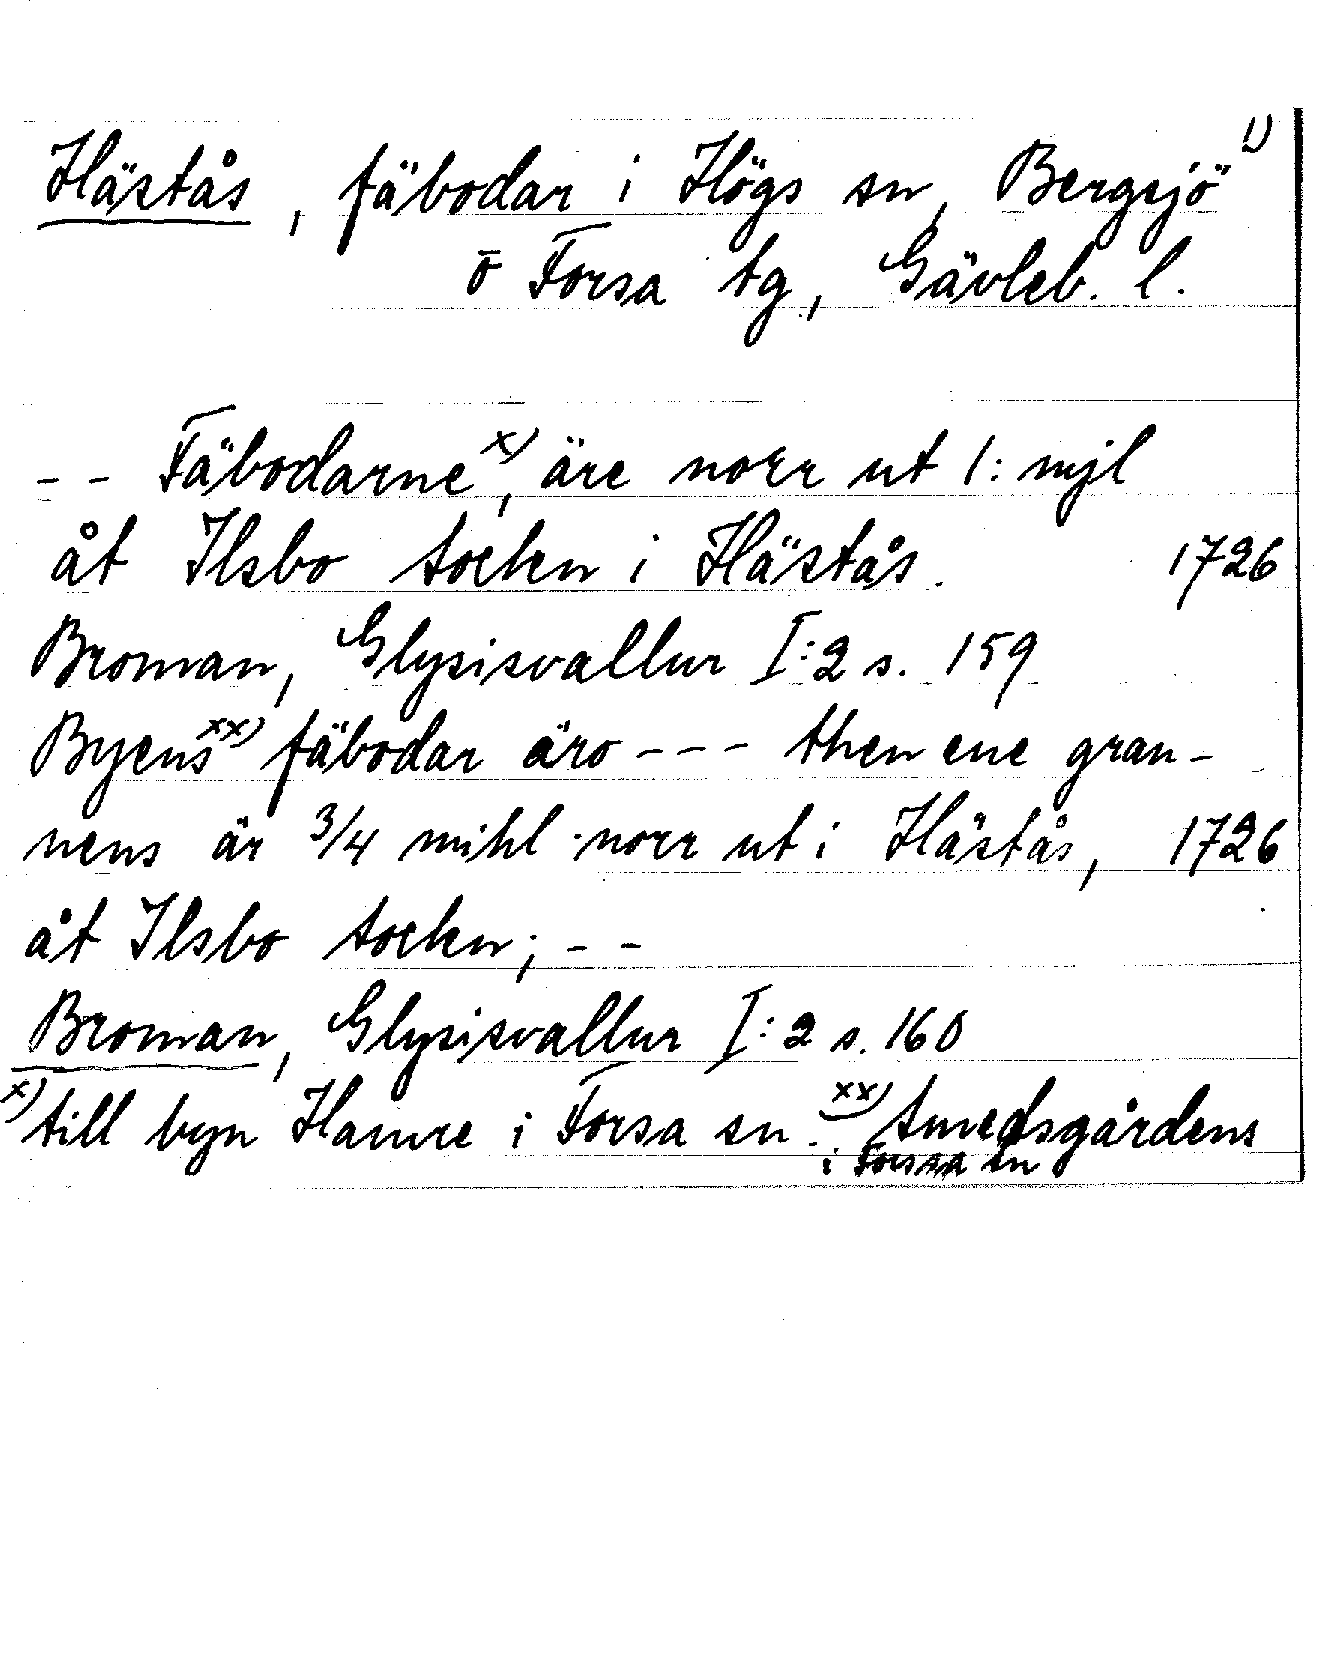 Hästås, fäbodar i Högs sn, Bergsjö 1)
o Forsa tg, Gävleb. l.
-- Fäbodarne x), äre norr ut 1: mjl
åt Ilsbo sockn i Hästås. 1726
Broman, Glysisvallur I:2 s. 159
Byens xx) fäbodar äro --- then ene gran-
nens är 3/4 mihl norr ut i Hästås, 1726
åt Ilsbo sockn; --
Broman, Glysisvallur I:2 s. 160
x) till byn Hamre i Forsa sn. xx) Smedsgårdens
i Forssa sn